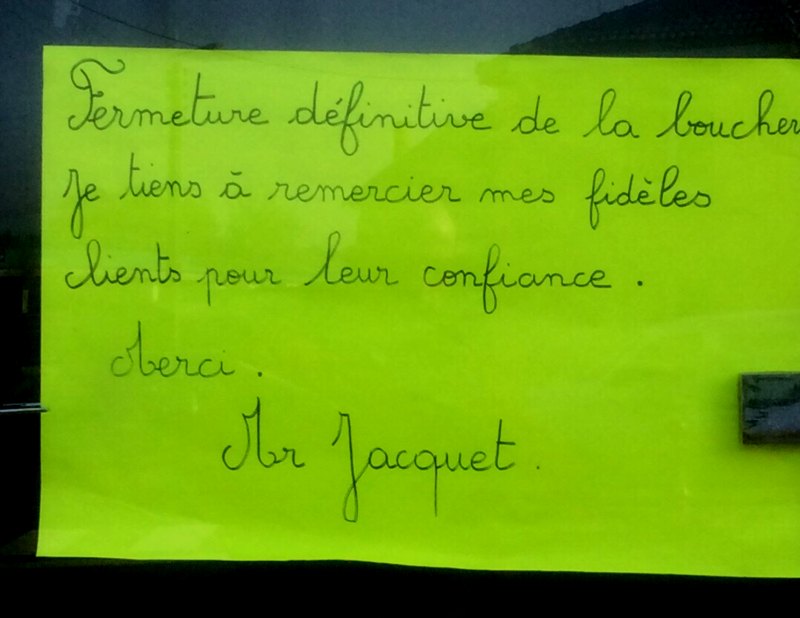 Fermeture définitive de la boucher
Je tiens à remercier mes fidèles
clients pour leur confiance.
Merci.
Mr Jacquet.